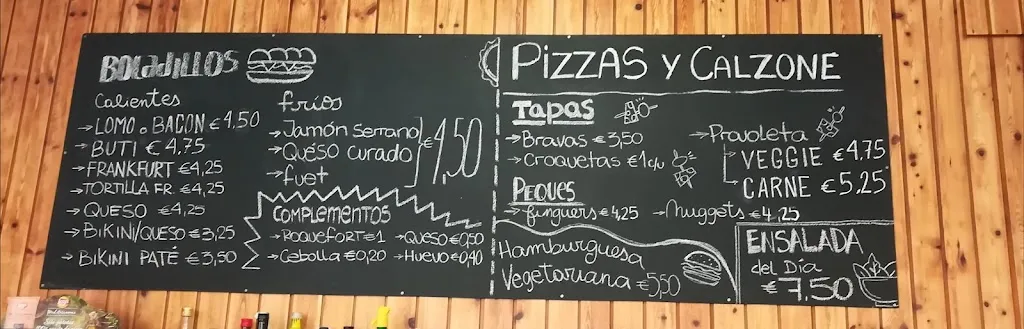 BOCADILLOS
Calientes
→LOMO o BACON €4,50
→BUTI €4,75
→FRANKFURT €4,25
→TORTILLA FR. €4,25
→QUESO €4,25
→BIKINI/QUESO €3,25
→BIKINI PATÉ €3,50
fríos
→Jamón serrano
→Queso curado
→fuet
€4,50
COMPLEMENTOS
→ROQUEFORT €1 →QUESO €0,50
→Cebolla €0,20 →HUEVO €0,40
PIZZAS Y CALZONE
TAPAS
→Bravas €3,50
→Croquetas €1 c/u
→Provoleta
VEGGIE €4,75
CARNE €5,25
PEQUES
→finguers €4,25 →Nuggets €4,25
Hamburguesa
Vegetariana €5,50
ENSALADA
del Día
€7,50